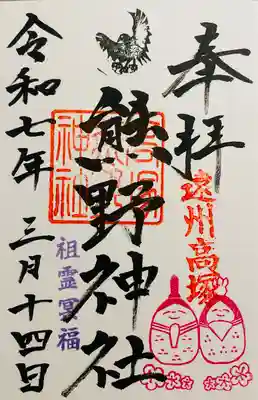 奉拝
遠州高塚
熊野神社
祖霊冥福
令和七年 三月十四日